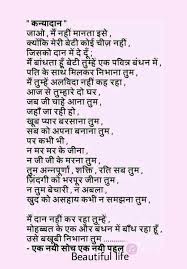 " कन्यादान "
जाओ , मैं नहीं मानता इसे ,
क्योंकि मेरी बेटी कोई चीज़ नहीं ,
जिसको दान में दे दूँ ;
मैं बांधता हूँ बेटी तुम्हें एक पवित्र बंधन में ,
पति के साथ मिलकर निभाना तुम ,
मैं तुम्हें अलविदा नहीं कह रहा ,
आज से तुम्हारे दो घर ,
जब जी चाहे आना तुम ,
जहाँ जा रही हो ,
खूब प्यार बरसाना तुम ,
सब को अपना बनाना तुम ,
पर कभी भी
न मर मर के जीना ,
न जी जी के मरना तुम ,
तुम अन्नपूर्णा , शक्ति , रति सब तुम ,
ज़िंदगी को भरपूर जीना तुम ,
न तुम बेचारी , न अबला ,
खुद को असहाय कभी न समझना तुम ,
मैं दान नहीं कर रहा तुम्हें ,
मोहब्बत के एक और बंधन में बाँध रहा हूँ ,
उसे बखूबी निभाना तुम .................
- एक नयी सोच एक नयी पहल
Beautiful life